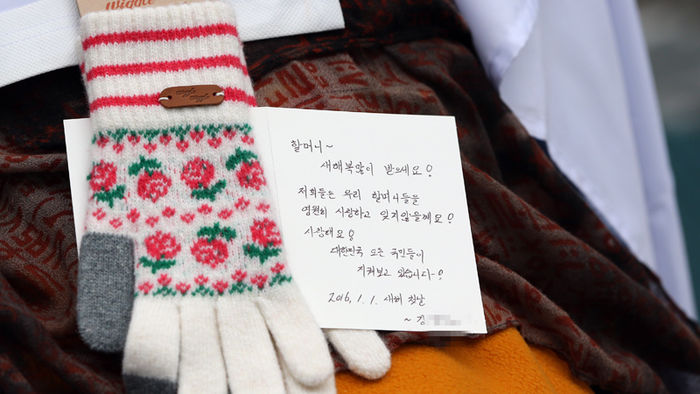 Wiggle
할머니~
새해복많이 받으세요!
저희들은 우리 할머니들을
영원히 사랑하고 잊지않을께요!
사랑해요!
대한민국 모든 국민들이
지켜보고 있습니다~!
2016, 1, 1. 새해 첫날
~ 김